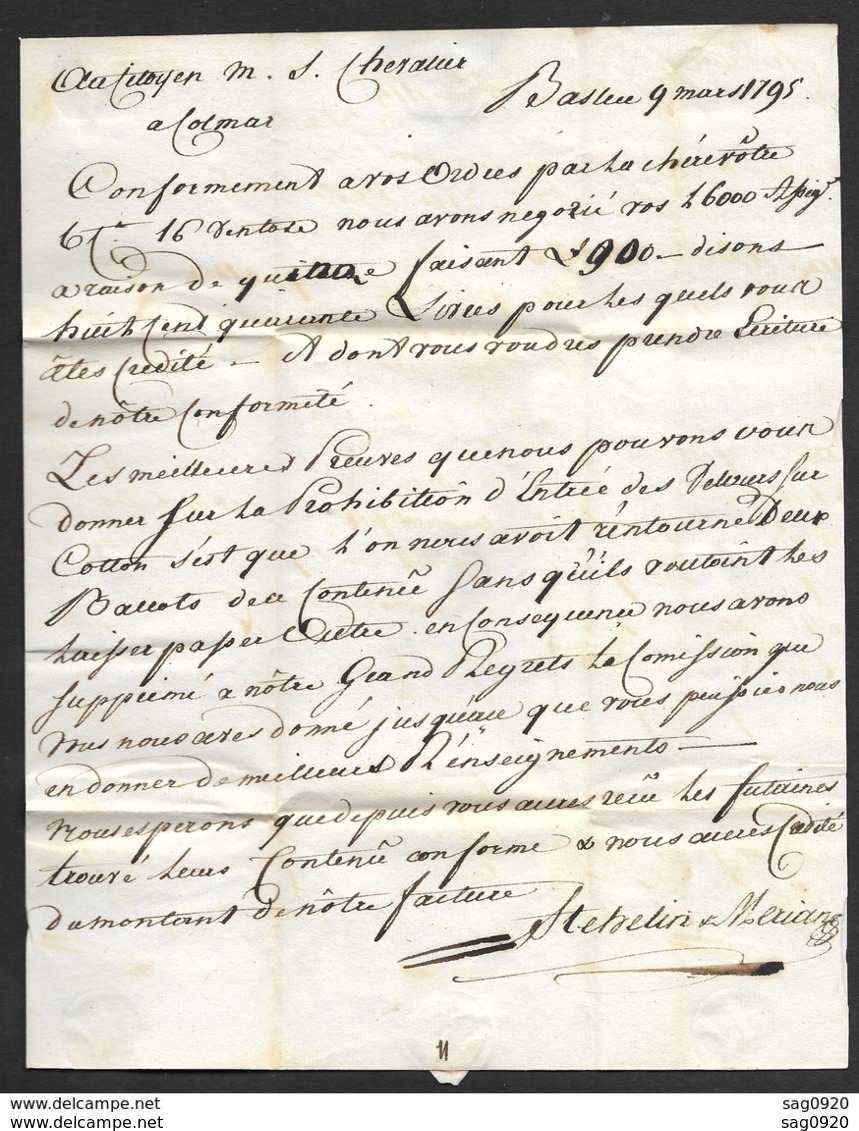 Au Citoyen M. J. Chevalier
Basle ce 9 mars 1795.
a Colmar
Conformement a vos Ordres par La chére vôtre
16 Ventose nous avons negozié vos L 6000 Assig.
a raison de quinze faisant L 900 — disons
huit Cent quarante Livres pour Les quels vous
êtes Credité — Et dont vous voudres prendre Ecriture
de nôtre Conformité.
Les meilleures Preuves que nous pouvons vous
donner Sur La Prohibition d'Entrée des Velours Sur
Cotton s'est que L'on nous avoit rentourné Deux
Ballots de ce Contenû Sans qu'ils vouloint Les
Laisser passer Outre en Consequence nous avons
supprimé a nôtre Grand Regrets La Comission que
vous nous aves donné jusqu'au que vous puissies nous
en donner de meilleurs Renseignements —
Nous esperons que depuis vous aures recû Les futaines
trouvé Leurs Contenû conforme & nous aures Credité
du montant de nôtre facture
Stehelin & Merian
11
sag0920
sag0920